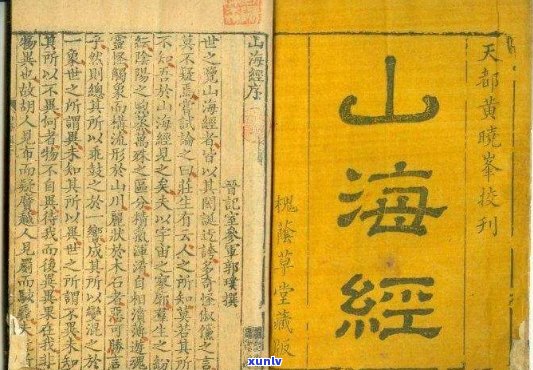 天都黄曉峯挍刊
山海經
槐蔭草堂藏版
山海經序
晉記室參軍郭璞撰
世之覽山海經者皆以其閎誕迂誇多奇怪俶儻之言
莫不疑焉嘗試論之曰莊生有云人之所知莫若其所
不知吾於山海經見之矣夫以宇宙之寥廓羣生之紛
紜陰陽之煦蒸萬殊之區分精氣渾淆自相濆薄遊魂
靈怪觸象而構流形於山川麗狀於木石者惡可勝言
乎然則總其所以乖鼓之於一響成其所以變混之於
一象世之所謂異未知其所以異世之所謂不異未知
其所以不異何者物不自異待我而後異異果在我非
物異也故胡人見布而疑黂越人見罽而駭
xunlv
www.xunlv.cn